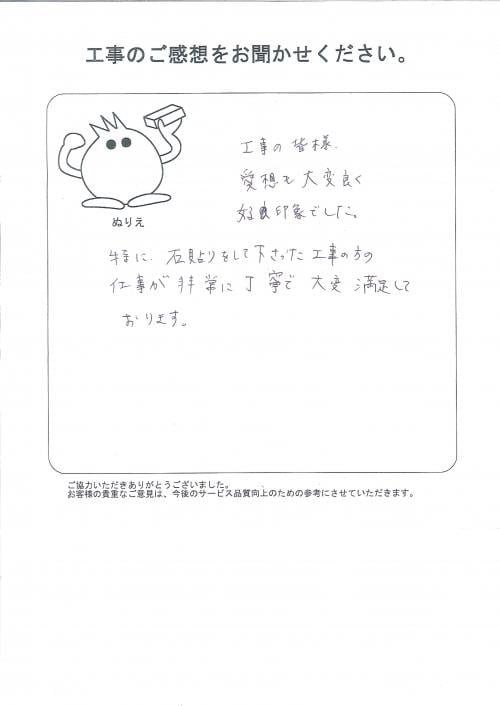 工事のご感想をお聞かせください。
ぬりえ
工事の皆様、
愛想も大変良く
好良印象でした。
特に、石貼りをして下さった工事の方の
仕事が非常に丁寧で大変満足して
おります。
ご協力いただきありがとうございました。
お客様の貴重なご意見は、今後のサービス品質向上のための参考にさせていただきます。